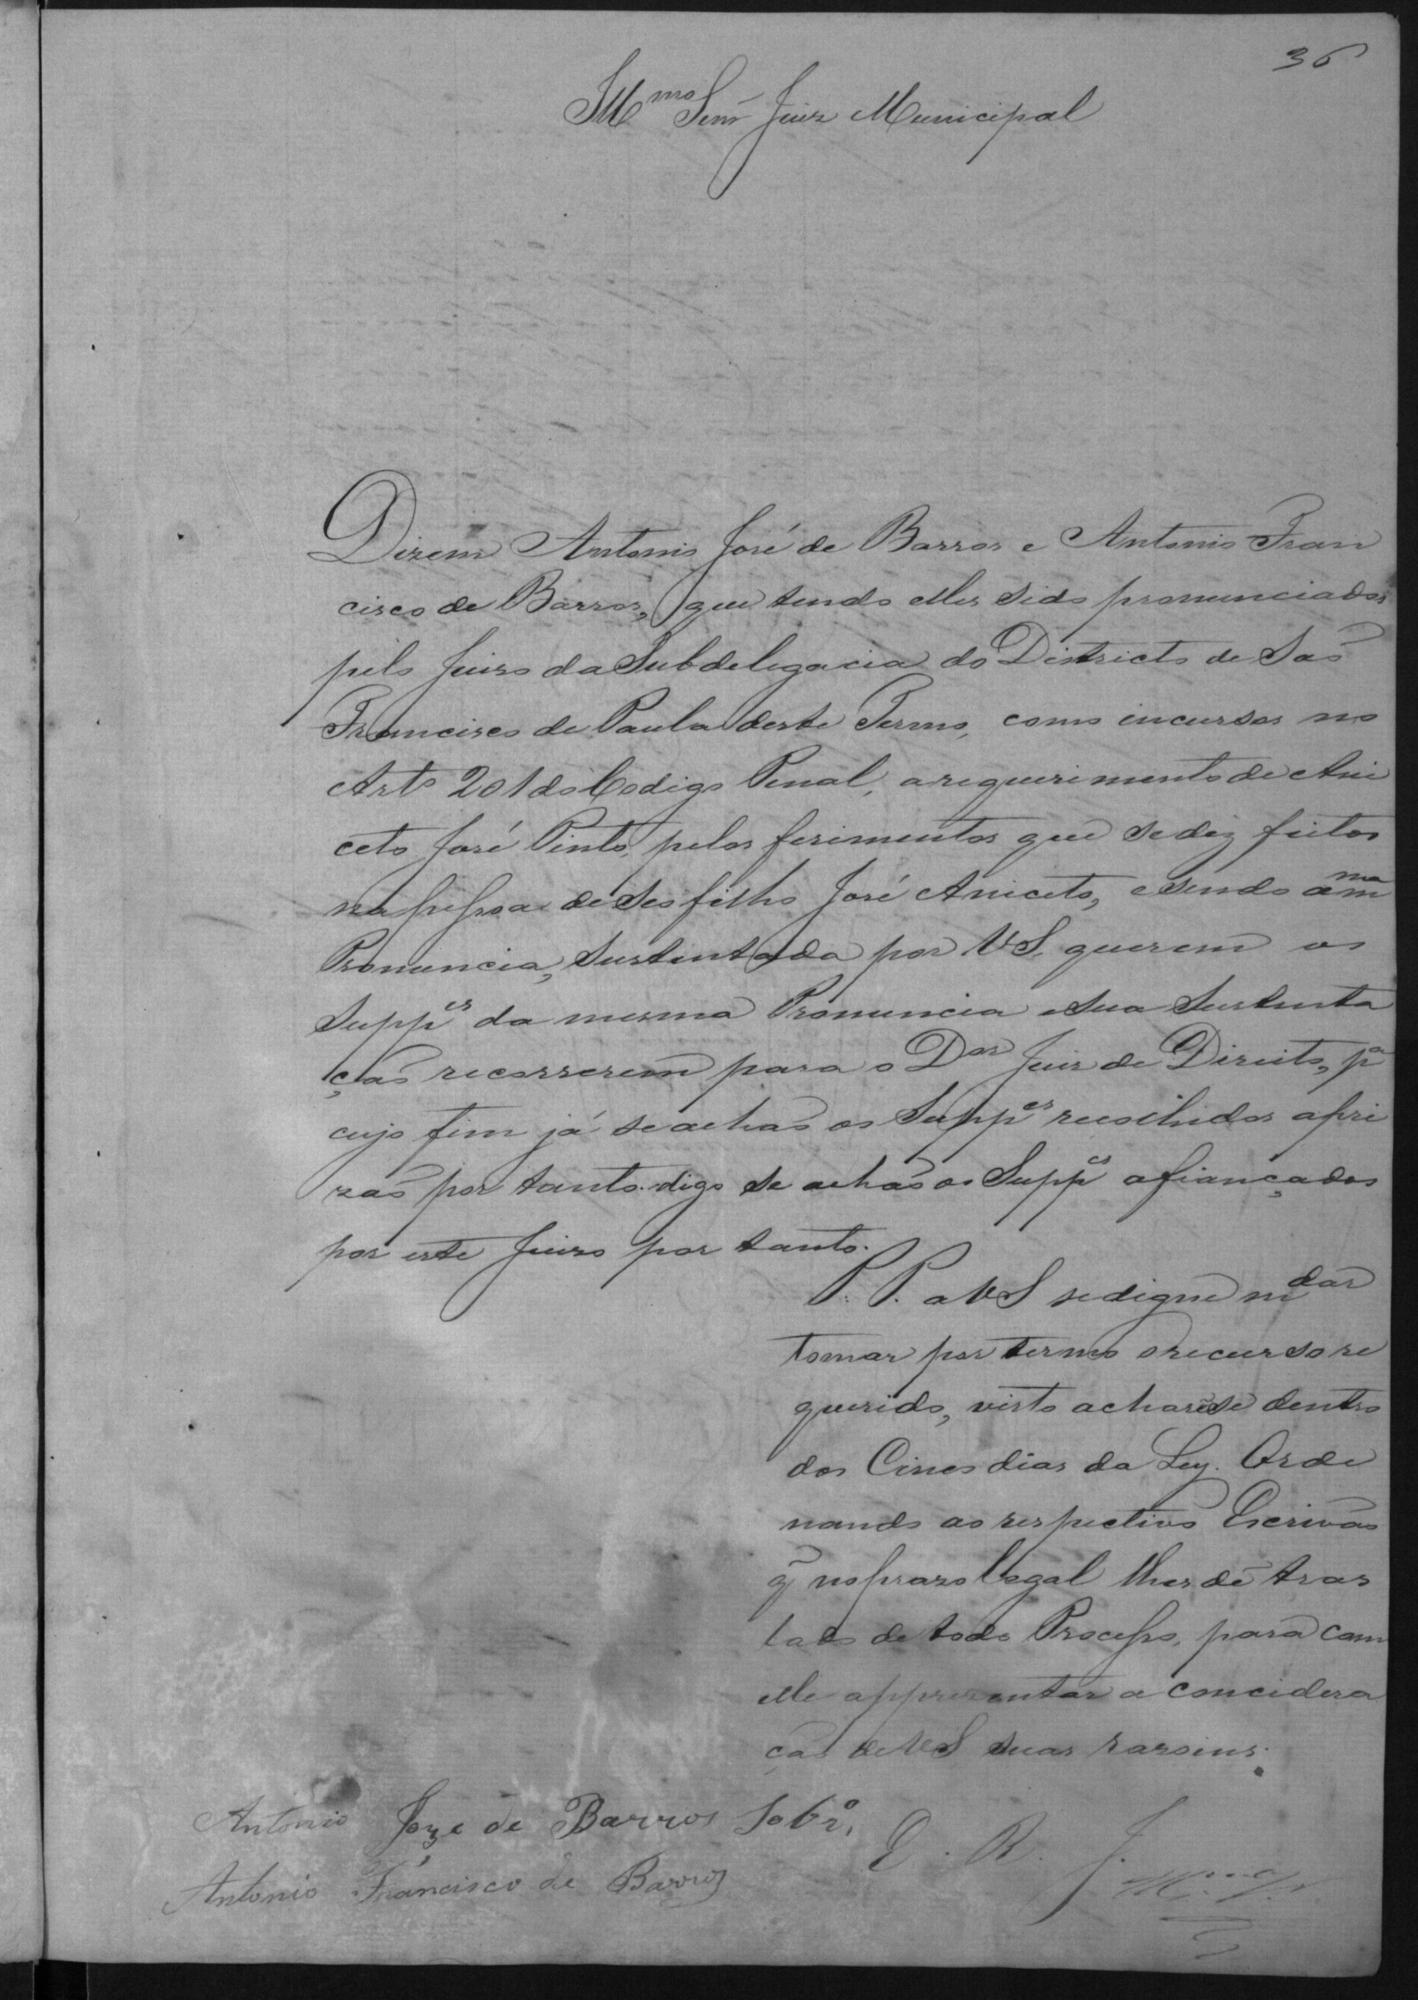 36
Illmo Senr Juiz Municipal
Dizem Antonio José de Barros e Antonio Fran
cisco de Barros, que tendo elles sido pronunciados
pelo Juizo da Subdelegacia do Districto de Saõ
Francisco de Paula deste Termo, como incursos no
Arto 201 do Codigo Penal, a requerimento de Ani
ceto José Pinto, pelos ferimentos que se diz feitos
na pessoa de seo filho José Aniceto, e sendo a mma
Pronuncia, sustentada por VS. querem os
Suppes da mesma Pronuncia e sua Sustenta
çaõ recorrerem para o Dor Juiz de Direito, pa
cujo fim já se achaõ os Suppes recolhidos a pri
zaõ por tanto. digo se achaõ os Suppes afiançados
por este Juizo por tanto.
P. P. a VS se digne mdar
tomar por termo o recurso re
querido, visto acharẽse dentro
dos Cinco dias da Ley. Orde
nando ao respectivo Escrivaõ
q̃ no prazo legal lhes dê tras
lado de todo Processo, para com
elle appresentar a concidera
çaõ de VS suas rasoens.
Antonio Joze de Barros Sobro.
E. R. J.
Antonio Francisco de Barros